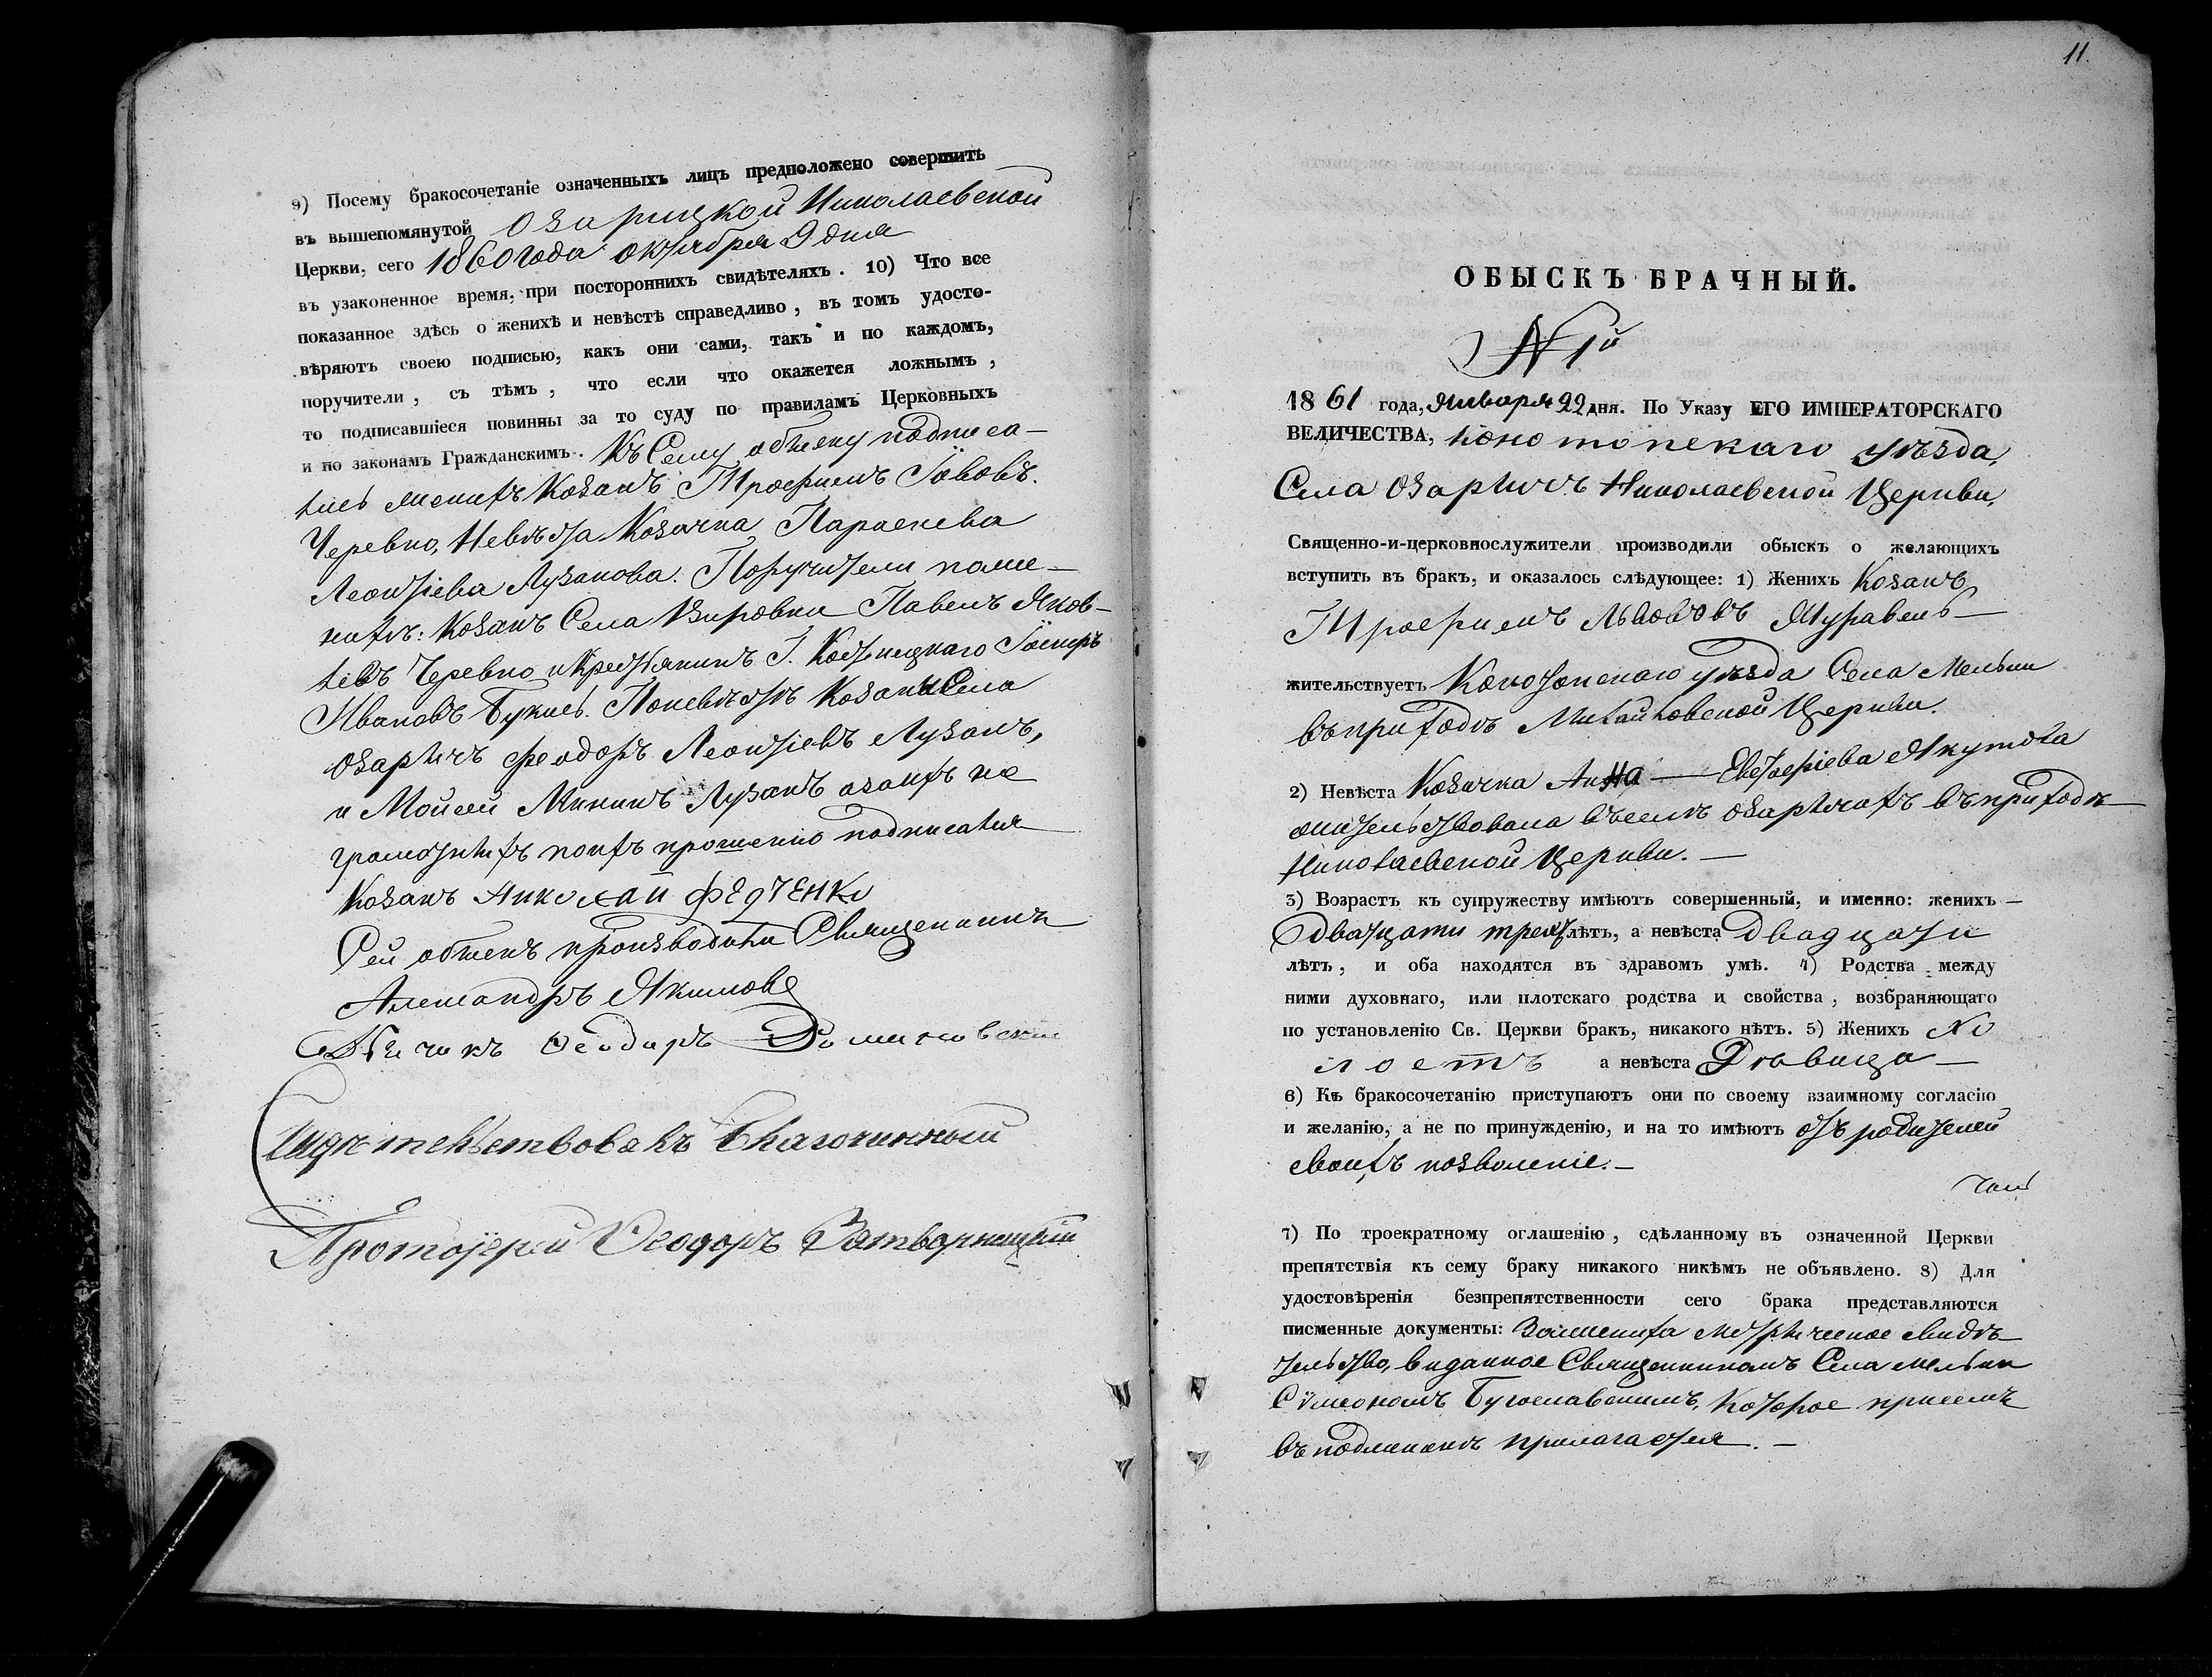 9) Посему бракосочетаніе означенныхъ лицъ предположено совершить
въ вышепомянутой Озарицкой Николаевской
Церкви, сего 1860 года октября 9 дня
въ узаконенное время, при постороннихъ свидѣтеляхъ. 10) Что все
показанное здѣсь о женихѣ и невѣстѣ справедливо, въ томъ удосто-
вѣряютъ своею подписью, какъ они сами, такъ и по каждомъ,
поручители, съ тѣмъ, что если что окажется ложнымъ,
то подписавшіеся повинны за то суду по правиламъ Церковныхъ
и по законамъ Гражданскимъ. Къ Сему обыску подписа-
лись женихъ Козакъ Трофимъ Іововъ
Черевко, Невѣста Козачка Параскева
Леонтіева Лузанова. Поручители по же-
нихѣ: Козакъ Села Вировки Павелъ Яков-
левъ Черевко и Крестянинъ Г.
Ивановъ Букись. По невѣстѣ Козаки Села
Озаричъ Феодоръ Леонтіевъ Лузанъ,
и Мойсей Лузанъ а за ихъ не
грамотныхъ по ихъ прошенію подписался
Козакъ Николай Федченко
Сей обыскъ производили Священникъ
Александръ Якимовъ
Дьячокъ Феодоръ
Свидѣтельствовалъ Благочинный
Протоіерей Феодоръ Затворницкій
11.
ОБЫСКЪ БРАЧНЫЙ.
№ 1й
1861 года, Января 22 дня. По Указу ЕГО ИМПЕРАТОРСКАГО
ВЕЛИЧЕСТВА, Конотопскаго уѣзда,
Села Озаричъ Николаевской Церкви,
Священно-и-церковнослужители производили обыскъ о желающихъ
вступить въ бракъ, и оказалось слѣдующее: 1) Женихъ Козакъ
Трофимъ Львовъ Журавель
жительствуетъ Конотопскаго уѣзда Села Мельни
въ приходѣ Михайловской Церкви.
2) Невѣста Козачка Анна — Евстафіева Якутова
жительствовала въ селѣ Озаричахъ въ приходѣ
Николаевской Церкви. —
3) Возрастъ къ супружеству имѣютъ совершенный, и именно: женихъ —
двадцати трехъ лѣтъ, а невѣста двадцати
лѣтъ, и оба находятся въ здравомъ умѣ. 4) Родства между
ними духовнаго, или плотскаго родства и свойства, возбраняющаго
по установленію Св. Церкви бракъ, никакого нѣтъ. 5) Женихъ Хо
лостъ а невѣста Дѣвица —
6) Къ бракосочетанію приступаютъ они по своему взаимному согласію
и желанію, а не по принужденію, и на то имѣютъ отъ родителей
своихъ позволеніе. —
7) По троекратному оглашенію, сдѣланному въ означенной Церкви
препятствія къ сему браку никакого никѣмъ не объявлено. 8) Для
удостовѣренія безпрепятственности сего брака представляются
писменные документы: За жениха метрическое свидѣ-
тельство, виданное Священникомъ Села Мельни
Сѵмеономъ Бугославскимъ, которое при семъ
въ подлинникѣ прилагается. —